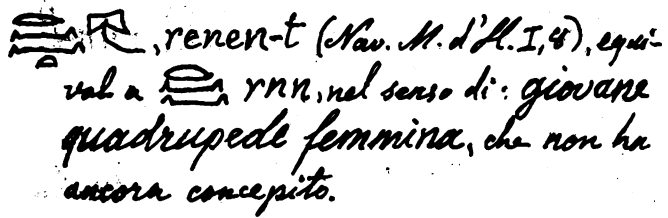 𓂋𓈖𓈖𓏏𓄛, renen-t (Nav. M. d'H. I, 8), equi-
val a 𓂋𓈖𓈖 rnn, nel senso di: giovane
quadrupede femmina, che non ha
ancora concepito.